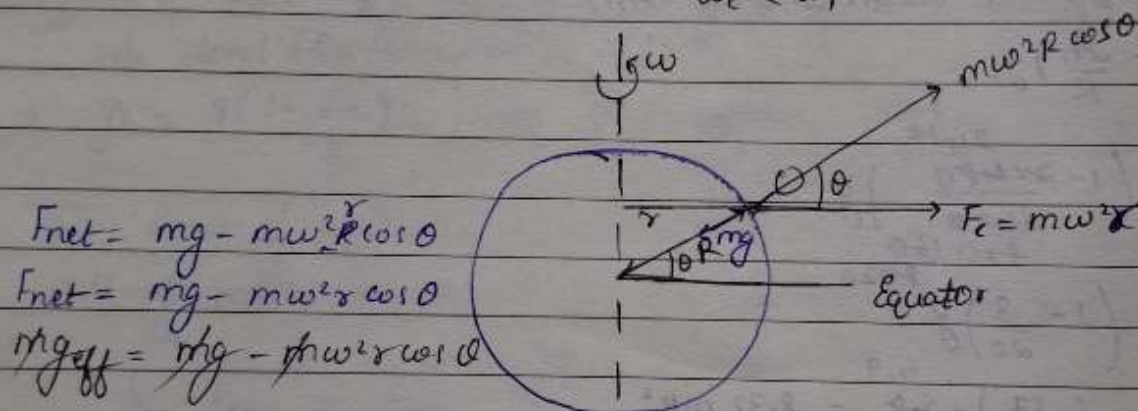 ω
mω²R cosθ
θ
r
F_c = mω²r
R mg
θ
Equator
F_net = mg - mω²r cosθ
F_net = mg - mω²r cosθ
mg_eff = mg - mω²r cosθ